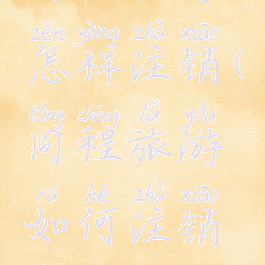 zěn yàng zhù xiāo
怎样注销(
tóng chéng lǚ yóu
同程旅游
rú hé zhù xiāo
如何注销